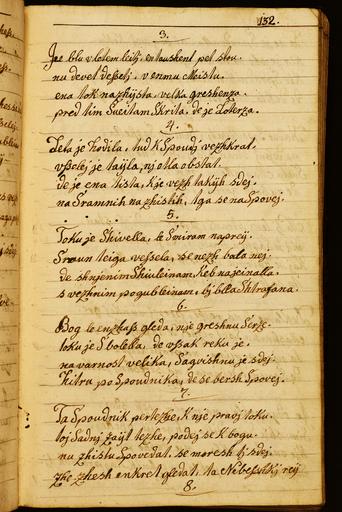 132.
3.
Je blu v letem leitj, en taushent pet stou.
nu devet desselj, v enmu Meistu.
ena tok nazhijsta, velka greshenza.
pred tim Sveitam Skrita, de je Loterza.
4.
Ta je hodila, tud k Spovdj vezhkrat.
vsselej je tajila, nj otla obstat.
de je ena tista, k je vezh takijh sdej.
na Sramnih nazhistih, tga se na Spovej.
5.
Toku je Shivella, le Smiram naprej.
Svoun teiga vessela, se nezh bala nej
de shnjenim Shiuleinam, k eb nazeinalla.
s vezhnim pogubleinam, bj blla Shtrafana.
6.
Bog le enzhass gleda, nje greshnu Serze.
toku je S'bolella, de vssak reku je.
na varnost velika, Sagvishnu je sdej
hitra po Spoudnika, de se bersh Spovej.
7.
Ta Spoudnik pertezhe, k nje pravj toku.
toj Sadnj zajt tezhe, podej se k bogu.
nu zhistu Spovedat, se moresh tj sdej.
zhe zhesh enkret gledat, ta Nebesshkj rej
8.